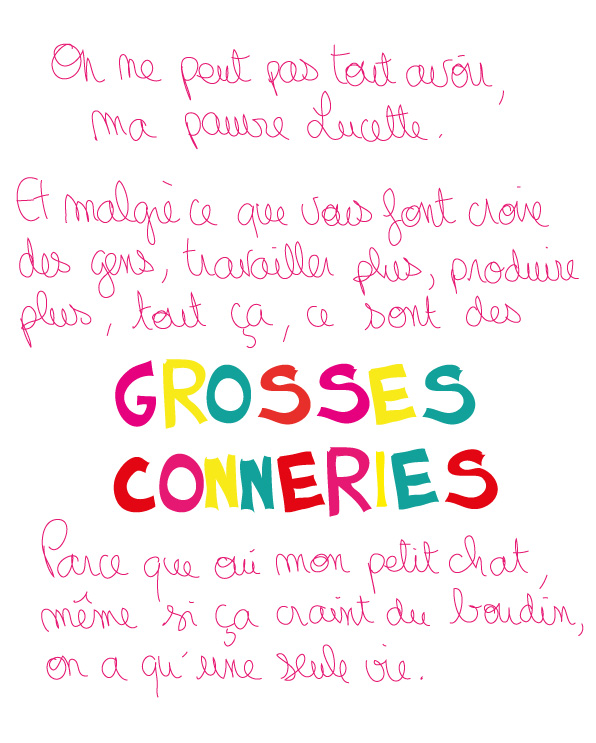 On ne peut pas tout avoir,
ma pauvre Lucette.
Et malgré ce que vous font croire
des gens, travailler plus, produire
plus, tout ça, ce sont des
GROSSES
CONNERIES
Parce que oui mon petit chat,
même si ça craint du boudin,
on a qu'une seule vie.